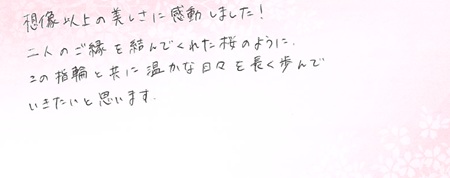 想像以上の美しさに感動しました!
二人のご縁を結んでくれた桜のように、
この指輪と共に温かな日々を長く歩んで
いきたいと思います.